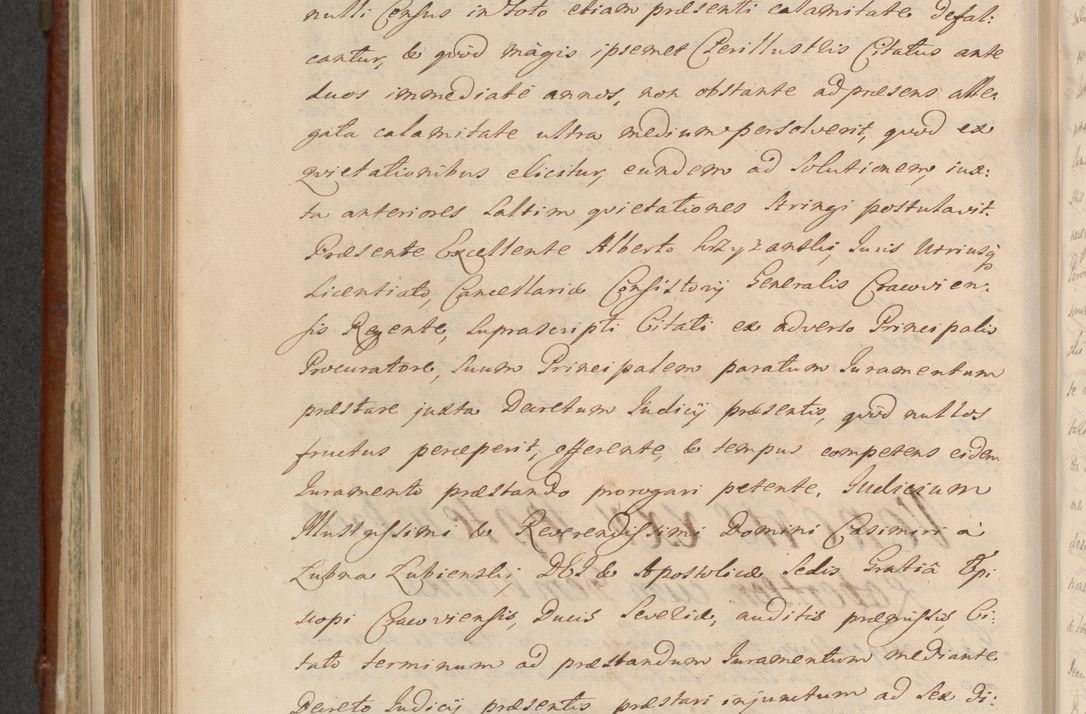 nulli Census in toto etiam præsenti calamitate defal:
cantur, & qvòd màgis ipsemet Perillustris Citatus ante
duos immediatè annos, non obstante ad præsens alle,
gata calamitate ultra medium persolverit, qvòd ex
qvietationibus elicitur, eundem ad Solutionem, iux:
ta anteriores Saltim qvietationes stringi postulavit.
Præsente Excellente Alberto Krzyżanski, Juris Utriusq
Licentiato, Cancellariæ Consistorij Generalis Cracovien:
sis Regente, Suprascripti Citati ex adverso Principalis
Procuratore, Suum Principalem paratum Juramentum
præstare juxta Decretum Judicij præsentis, qvòd nullos
fructus perceperit, offerente, & tempus competens eidem
Juramento præstando prorogari petente. Judicium
Illustrissimi & Reverendissimi Domini Casimiri à
Lubna Lubienski, DEI & Apostolicæ Sedis Gratiâ Epi
scopi Cracoviensis, Ducis Severiæ, auditis præmissis, Ci:
tato terminum ad præstandum Juramentum mediante
Decreto Judicij præsentis præstari injunctum ad Sex di: